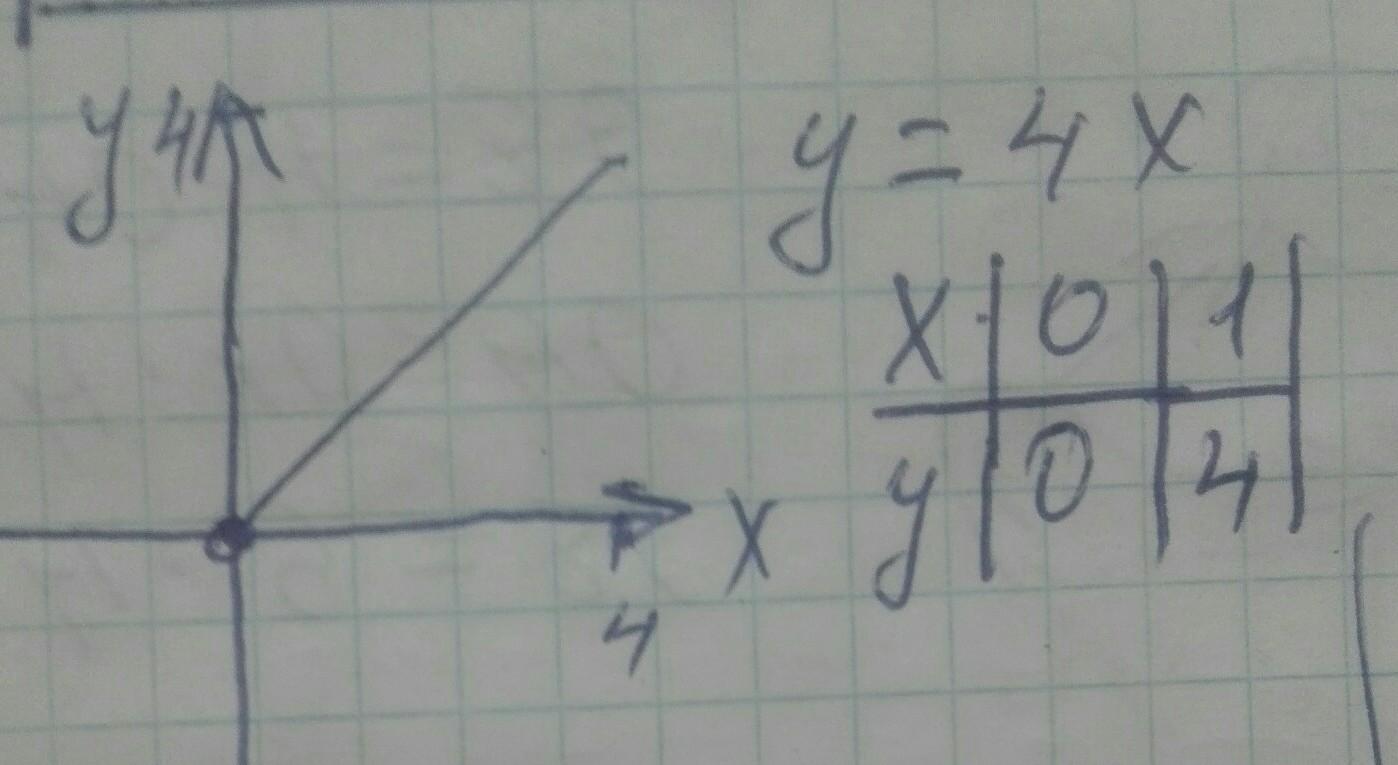 y 4
y = 4x
x | 0 | 1 |
y | 0 | 4 |
x
4